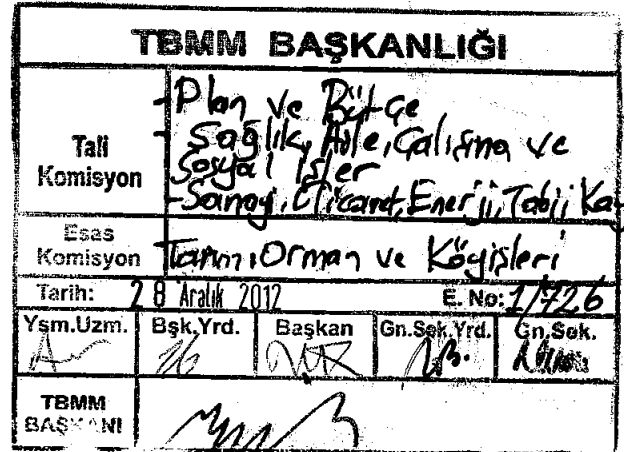 TBMM BAŞKANLIĞI
Tali Komisyon
-Plan ve Bütçe
-Sağlık, Aile, Çalışma ve
Sosyal İşler
-Sanayi, Ticaret, Enerji, Tabii Kay
Esas Komisyon
Tarım, Orman ve Köyişleri
Tarih: 28 Aralık 2012 E. No: 1/726
Ysm.Uzm. Bşk.Yrd. Başkan Gn.Sek.Yrd. Gn.Sek.
TBMM
BAŞKANI